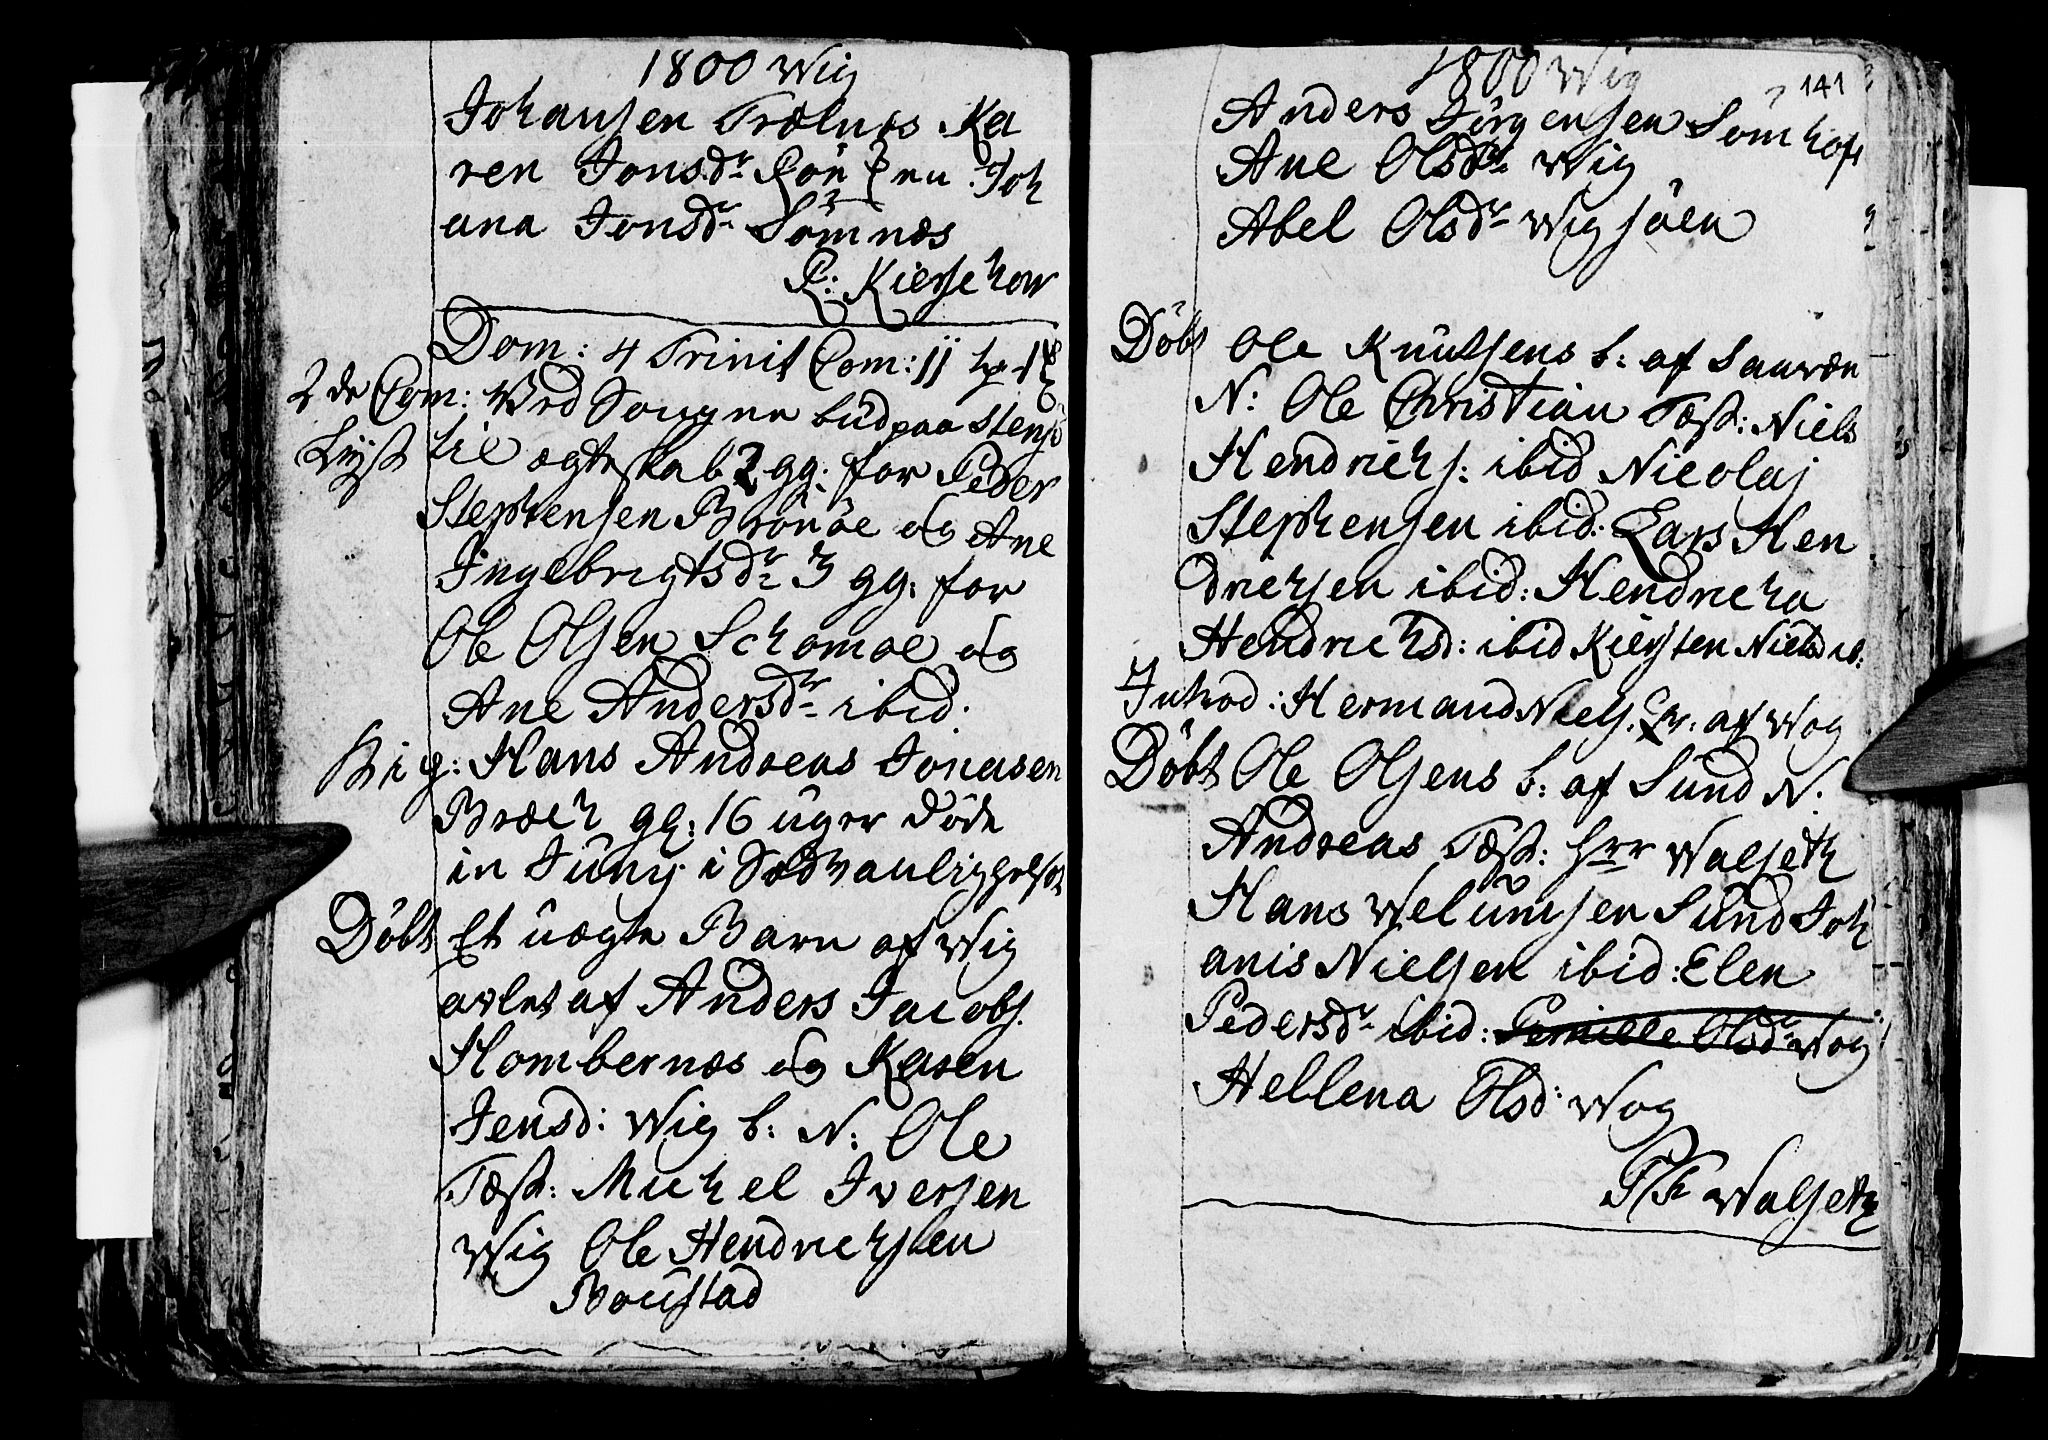 1800 Wig
Johansen Trælnæs Ka
ren Jonsdr Røn Enu Joh
ana Jonsdr Sømnæs
P: Kierschow
Dom: 4 Trinit Com: 11 hp
2de Com: Ved Sougne bud paa
Lyst til ægteskab 2 gg: for Peder
Stephensen Brönöe og Ane
Ingebrigtsdr 3 gg: for
Ole Olsen Schomoe og
Ane Andersdr ibid.
Hans Andreas Jonasen
Bræch gl: 16 uger døde
in Juny i Sædvanlig
Döbt Et uægte Barn af Wig
avlet af Anders Jacobs.
Hombernæs og Karen
Jensd: Wig b: N: Ole
Tæst: Michel Iversen
Wig Ole Hendrichsen
Boustad
1800 Wig
141
Anders Jørgensen Somhof
Ane Olsdr Wig
Abel Olsdr Wigsöen
Döbt Ole Knutsens b: af Sauren
N: Ole Christian Tæst: Niels
Hendrichs: ibid Nicolaj
Stephensen ibid: Lars Hen
drichsen ibid: Hendricha
Hendrichsd: ibid Kiersten Nielsd ib:
Introd: Hermand Niels. af Wog
Döbt Ole Olsens b: af Sund N.
Andreas Tæst: Hrr Walseth
Hans Welumsen Sund Joh
anis Nielsen ibid: Elen
Pedersdr ibid: Pernille Olsdr Wog
Hellena Olsd: Wog
Walseth